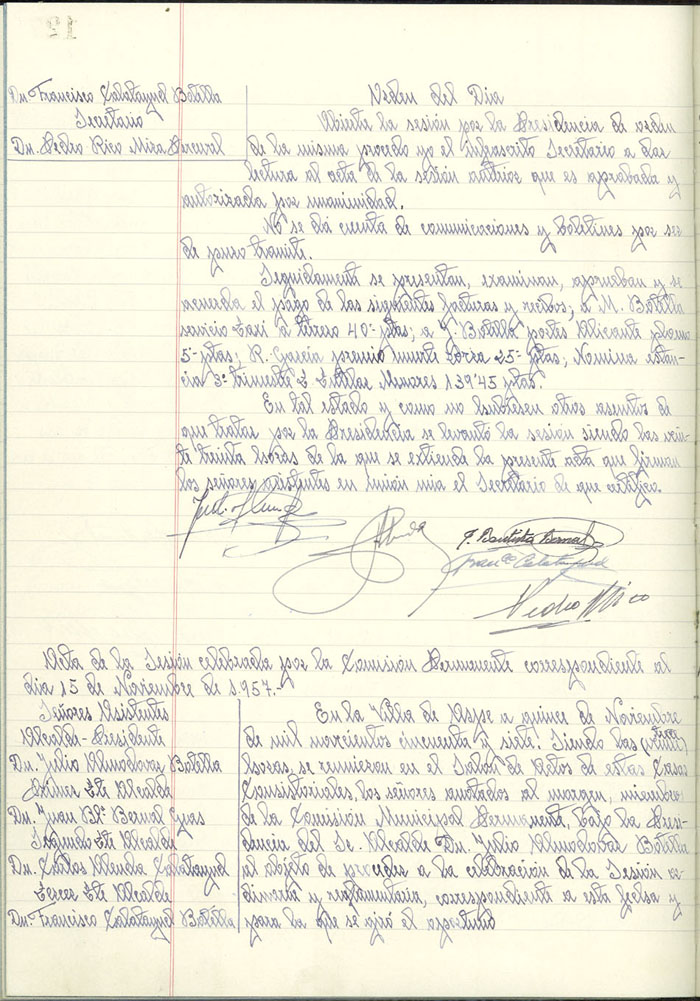 12
Dn. Francisco Calatayud Botella
Secretario
Dn. Pedro Rico Mira
Orden del Dia
Abierta la sesión por la Presidencia de orden
de la misma procedo yo el infrascrito Secretario a dar
lectura al acta de la sesión anterior que es aprobada y
autorizada por unanimidad.
No se dá cuenta de comunicaciones y boletines por ser
de puro tramite.
Seguidamente se presentan, examinan, aprueban y se
acuerda el pago de las siguientes facturas y recibos; a M. Botella
servicio taxi a 40- ptas; a J. Botella portes Alicante
5- ptas; R. García premio muerte zorra 25- ptas; Nomina estan-
cia 3º trimestre Tutelar Menores 139'45 ptas.
En tal estado y como no hubiesen otros asuntos de
que tratar por la Presidencia se levantó la sesión siendo las vein-
te treinta horas de la que se extiende la presente acta que firman
los señores asistentes en unión mia el Secretario de que certifico.
J. Bautista Bernal
Franco Calatayud
Pedro Rico
Acta de la Sesión celebrada por la Comisión Permanente correspondiente al
dia 15 de Noviembre de 1.957.-
Señores Asistentes
Alcalde-Presidente
Dn. Julio Almodovar Botella
Primer Tte Alcalde
Dn. Juan Bta Bernal
Segundo Tte Alcalde
Dn. Carlos Alenda Calatayud
Tercer Tte Alcalde
Dn. Francisco Calatayud Botella
En la Villa de Aspe a quince de Noviembre
de mil novecientos cincuenta y siete: Siendo las
horas, se reunieron en el Salón de Actos de estas Casas
Consistoriales, los señores anotados al margen, miembros
de la Comisión Municipal Permanente, bajo la Presi-
dencia del Sr. Alcalde Dn. Julio Almodovar Botella
al objeto de proceder a la celebración de la Sesión or-
dinaria y reglamentaria, correspondiente a esta fecha y
para la que se giró el oportuno